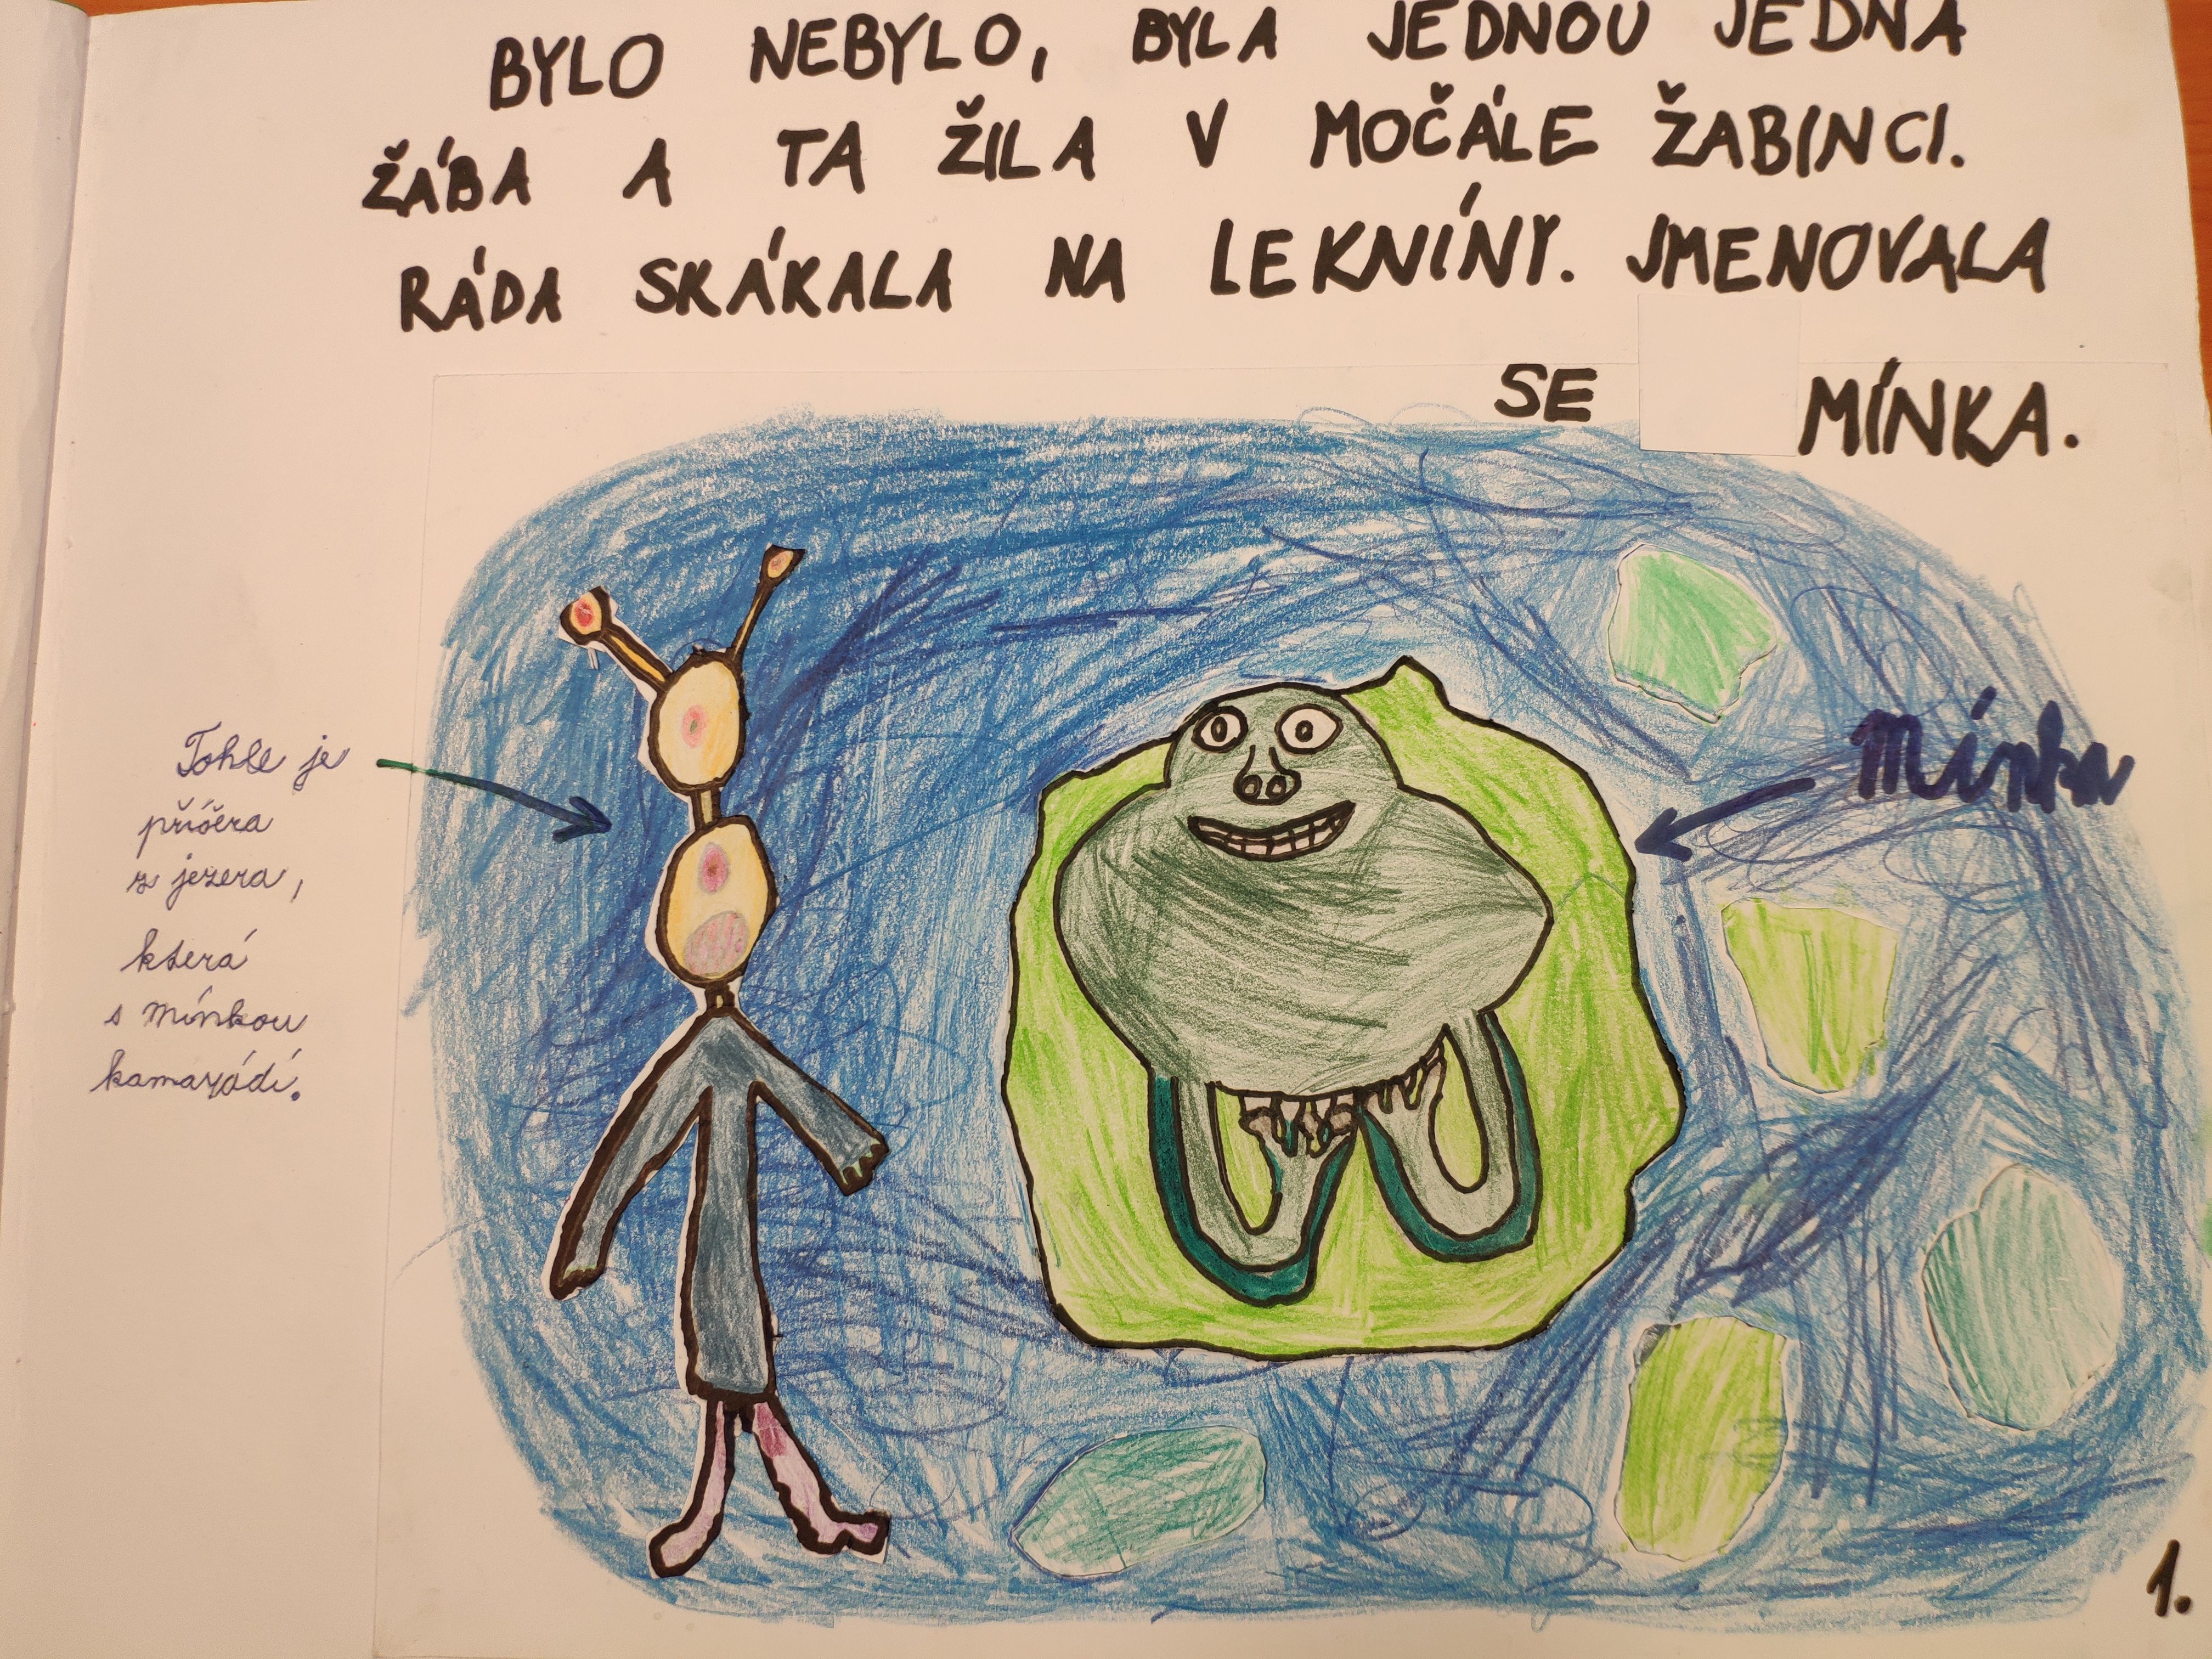 BYLO NEBYLO, BYLA JEDNOU JEDNA
ŽÁBA A TA ŽILA V MOČÁLE ŽABINCI.
RÁDA SKÁKALA NA LEKNÍNY. JMENOVALA
SE MÍNKA.
Tohle je
příšera
z jezera,
která
s mínkou
kamarádí.
Mínka
1.